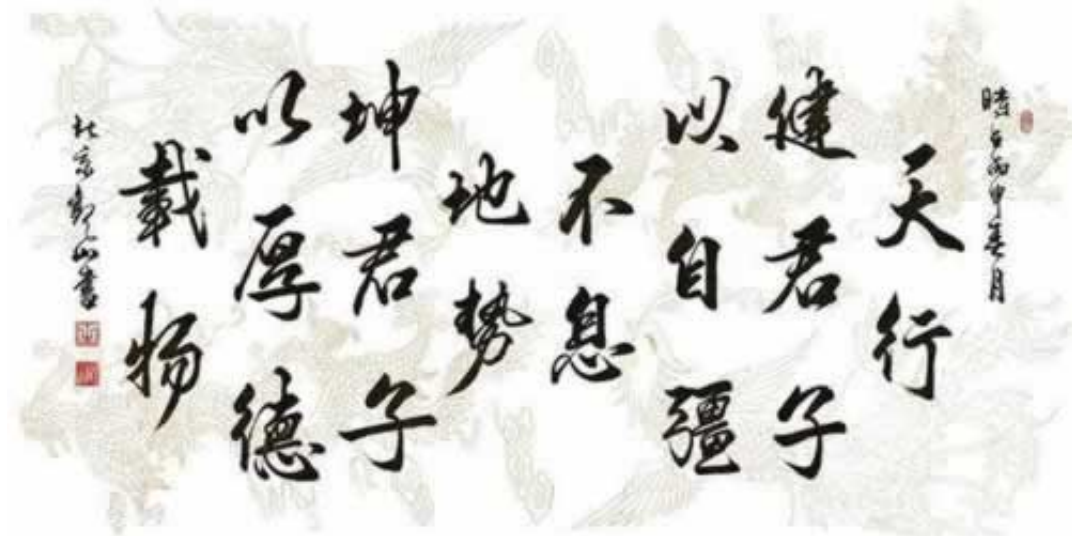 时在丙申春月
天行
健君子
以自彊
不息
地势
坤君子
以厚德
载物
北京郑山书